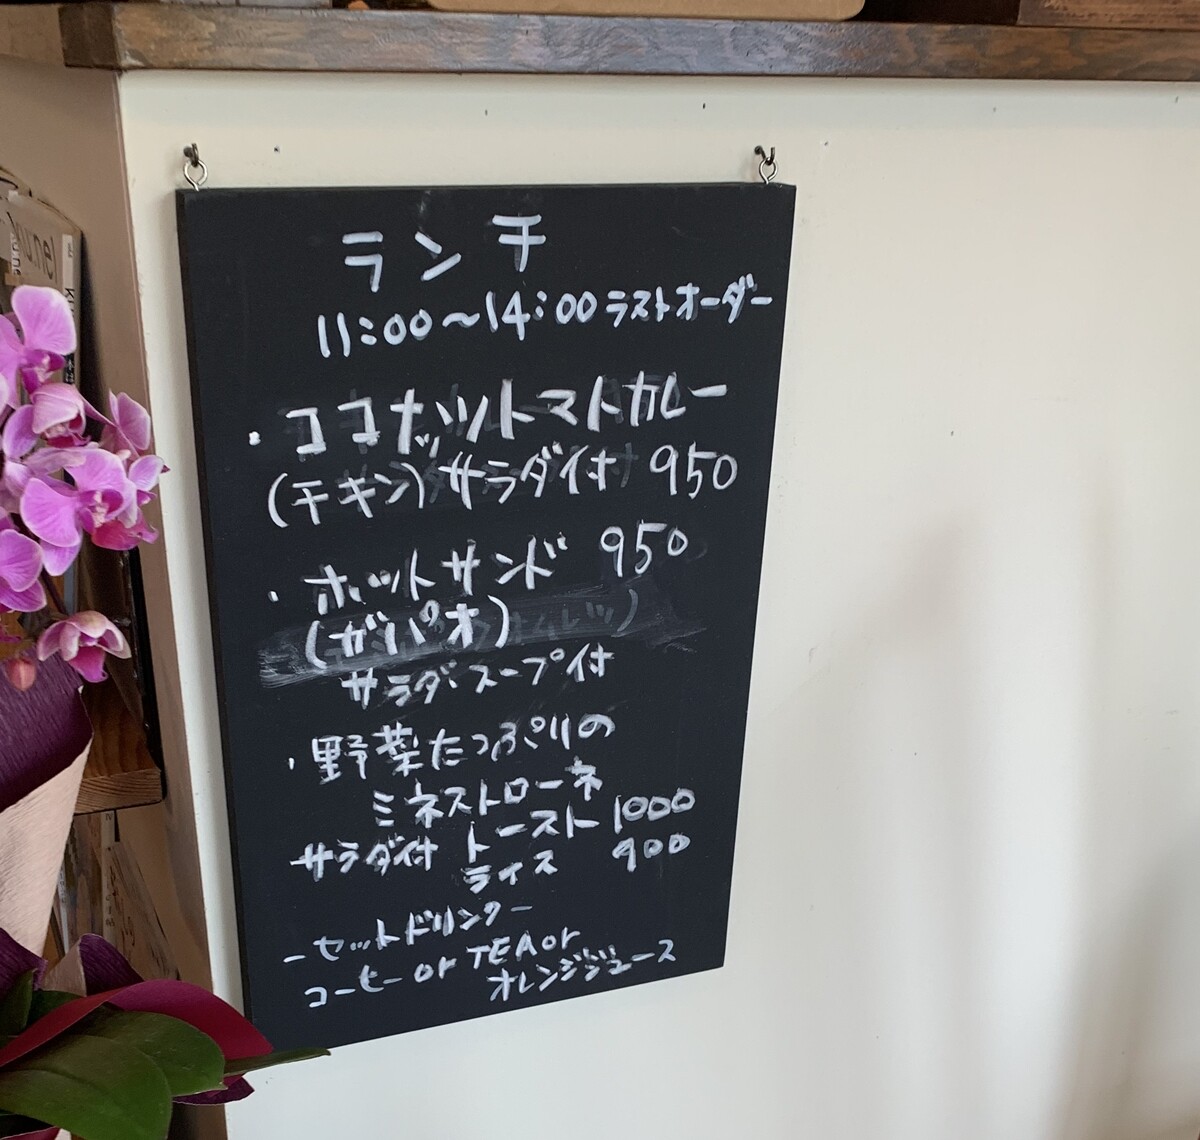 ランチ
11:00〜14:00ラストオーダー
・ココナッツトマトカレー
(チキン)サラダ付 950
・ホットサンド 950
(ガパオ)
サラダ・スープ付
・野菜たっぷりの
ミネストローネ
サラダ付 トースト 1000
ライス 900
ーセットドリンクー
コーヒー or TEA or
オレンジジュース